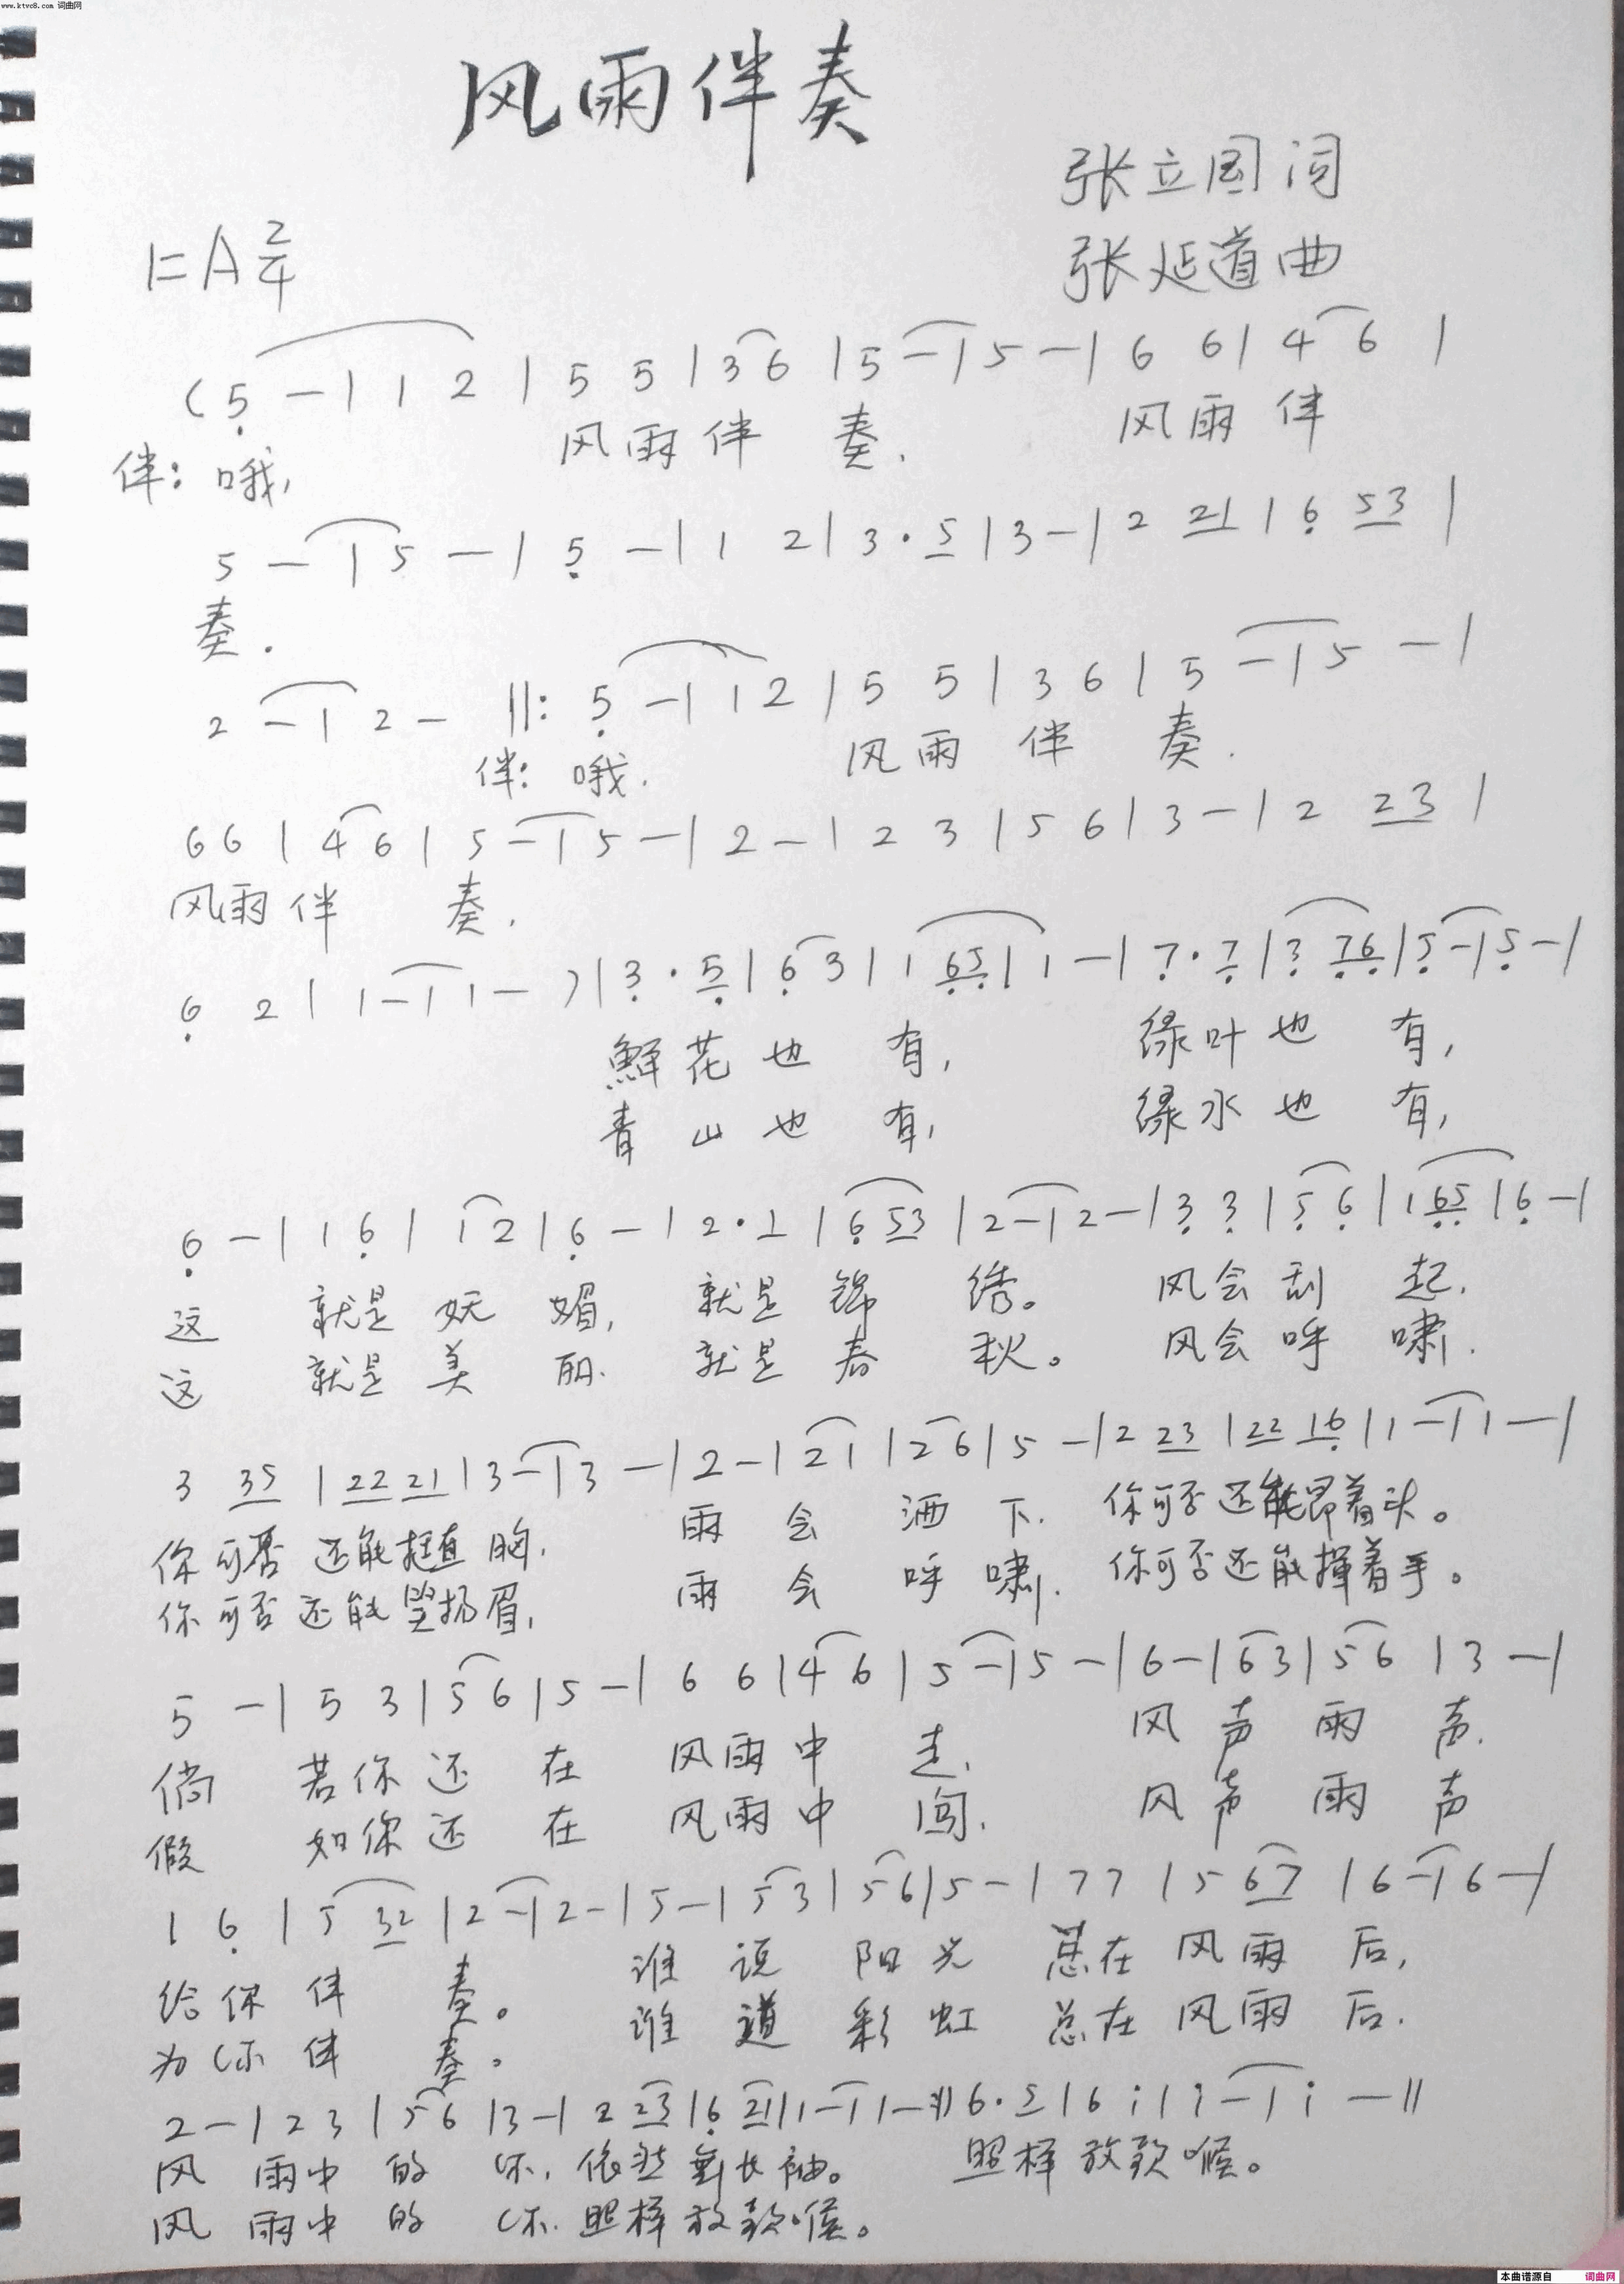 www.ktvc8.com 词曲网
风雨伴奏
张立国 词
1=A 2/4
张延道 曲
(5 - | 1 2 | 5 5 | 3 6 | 5 - | 5 - | 6 6 | 4 6 |
伴：哦， 风雨伴 奏. 风雨伴
5 - | 5 - | 5 - | 1 2 | 3 · 5 | 3 - | 2 21 | 6 53 |
奏.
2 - | 2 - ||: 5 - | 1 2 | 5 5 | 3 6 | 5 - | 5 - |
伴：哦. 风雨伴 奏.
6 6 | 4 6 | 5 - | 5 - | 2 - | 2 3 | 5 6 | 3 - | 2 23 |
风雨伴 奏.
6 2 | 1 - | 1 - ) | 3 · 5 | 6 3 | 1 65 | 1 - | 7 · 7 | 3 76 | 5 - | 5 - |
鲜花也 有， 绿叶也 有，
青山也 有， 绿水也 有，
6 - | 1 6 | 1 2 | 6 - | 2 · 1 | 6 53 | 2 - | 2 - | 3 3 | 5 6 | 1 65 | 6 - |
这 就是妩媚， 就是锦 绣。 风会刮 起.
这 就是美丽. 就是春 秋。 风会呼 啸.
3 35 | 22 21 | 3 - | 3 - | 2 - | 2 1 | 2 6 | 5 - | 2 23 | 22 16 | 1 - | 1 - |
你可否还能挺直胸. 雨会洒下. 你可否还能昂着头。
你可否还能竖扬眉， 雨会呼啸. 你可否还能挥着手。
5 - | 5 3 | 5 6 | 5 - | 6 6 | 4 6 | 5 - | 5 - | 6 - | 6 3 | 5 6 | 3 - |
倘 若你还在 风雨中 走. 风声雨声.
假 如你还在 风雨中 闯. 风声雨声
1 6 | 5 32 | 2 - | 2 - | 5 - | 5 3 | 5 6 | 5 - | 7 7 | 5 67 | 6 - | 6 - |
给你伴 奏。 谁说阳光 总在风雨 后，
为你伴 奏。 谁道彩虹 总在风雨 后.
2 - | 2 3 | 5 6 | 3 - | 2 23 | 6 21 | 1 - | 1 - :|| 6 · 5 | 6 i | i - | i - ||
风 雨中的 你， 依然舞长袖。 照样放歌喉。
风 雨中的 你. 照样放歌喉。
本曲谱源自 词曲网